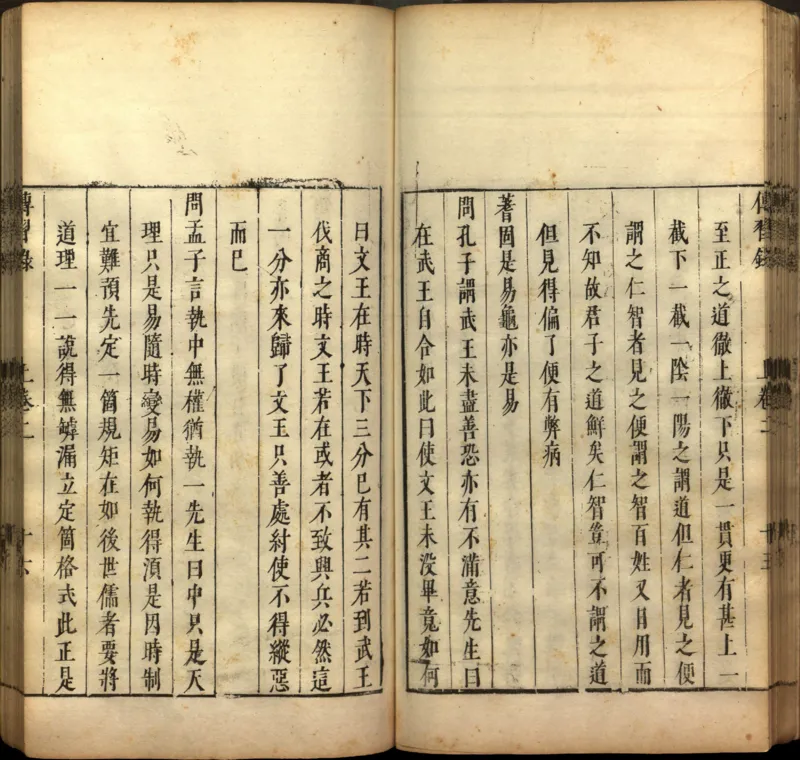 傳習錄 上卷二 十五
至正之道徹上徹下只是一貫更有甚上一
截下一截一陰一陽之謂道但仁者見之便
謂之仁智者見之便謂之智百姓又日用而
不知故君子之道鮮矣仁智豈可不謂之道
但見得偏了便有弊病
蓍固是易龜亦是易
問孔子謂武王未盡善恐亦有不滿意先生曰
在武王自合如此曰使文王未没畢竟如何
曰文王在時天下三分已有其二若到武王
伐商之時文王若在或者不致興兵必然這
一分亦來歸了文王只善處紂使不得縱惡
而已
問孟子言執中無權猶執一先生曰中只是天
理只是易隨時變易如何執得須是因時制
宜難預先定一箇規矩在如後世儒者要將
道理一一說得無罅漏立定箇格式此正是
傳習錄 上卷二 十六